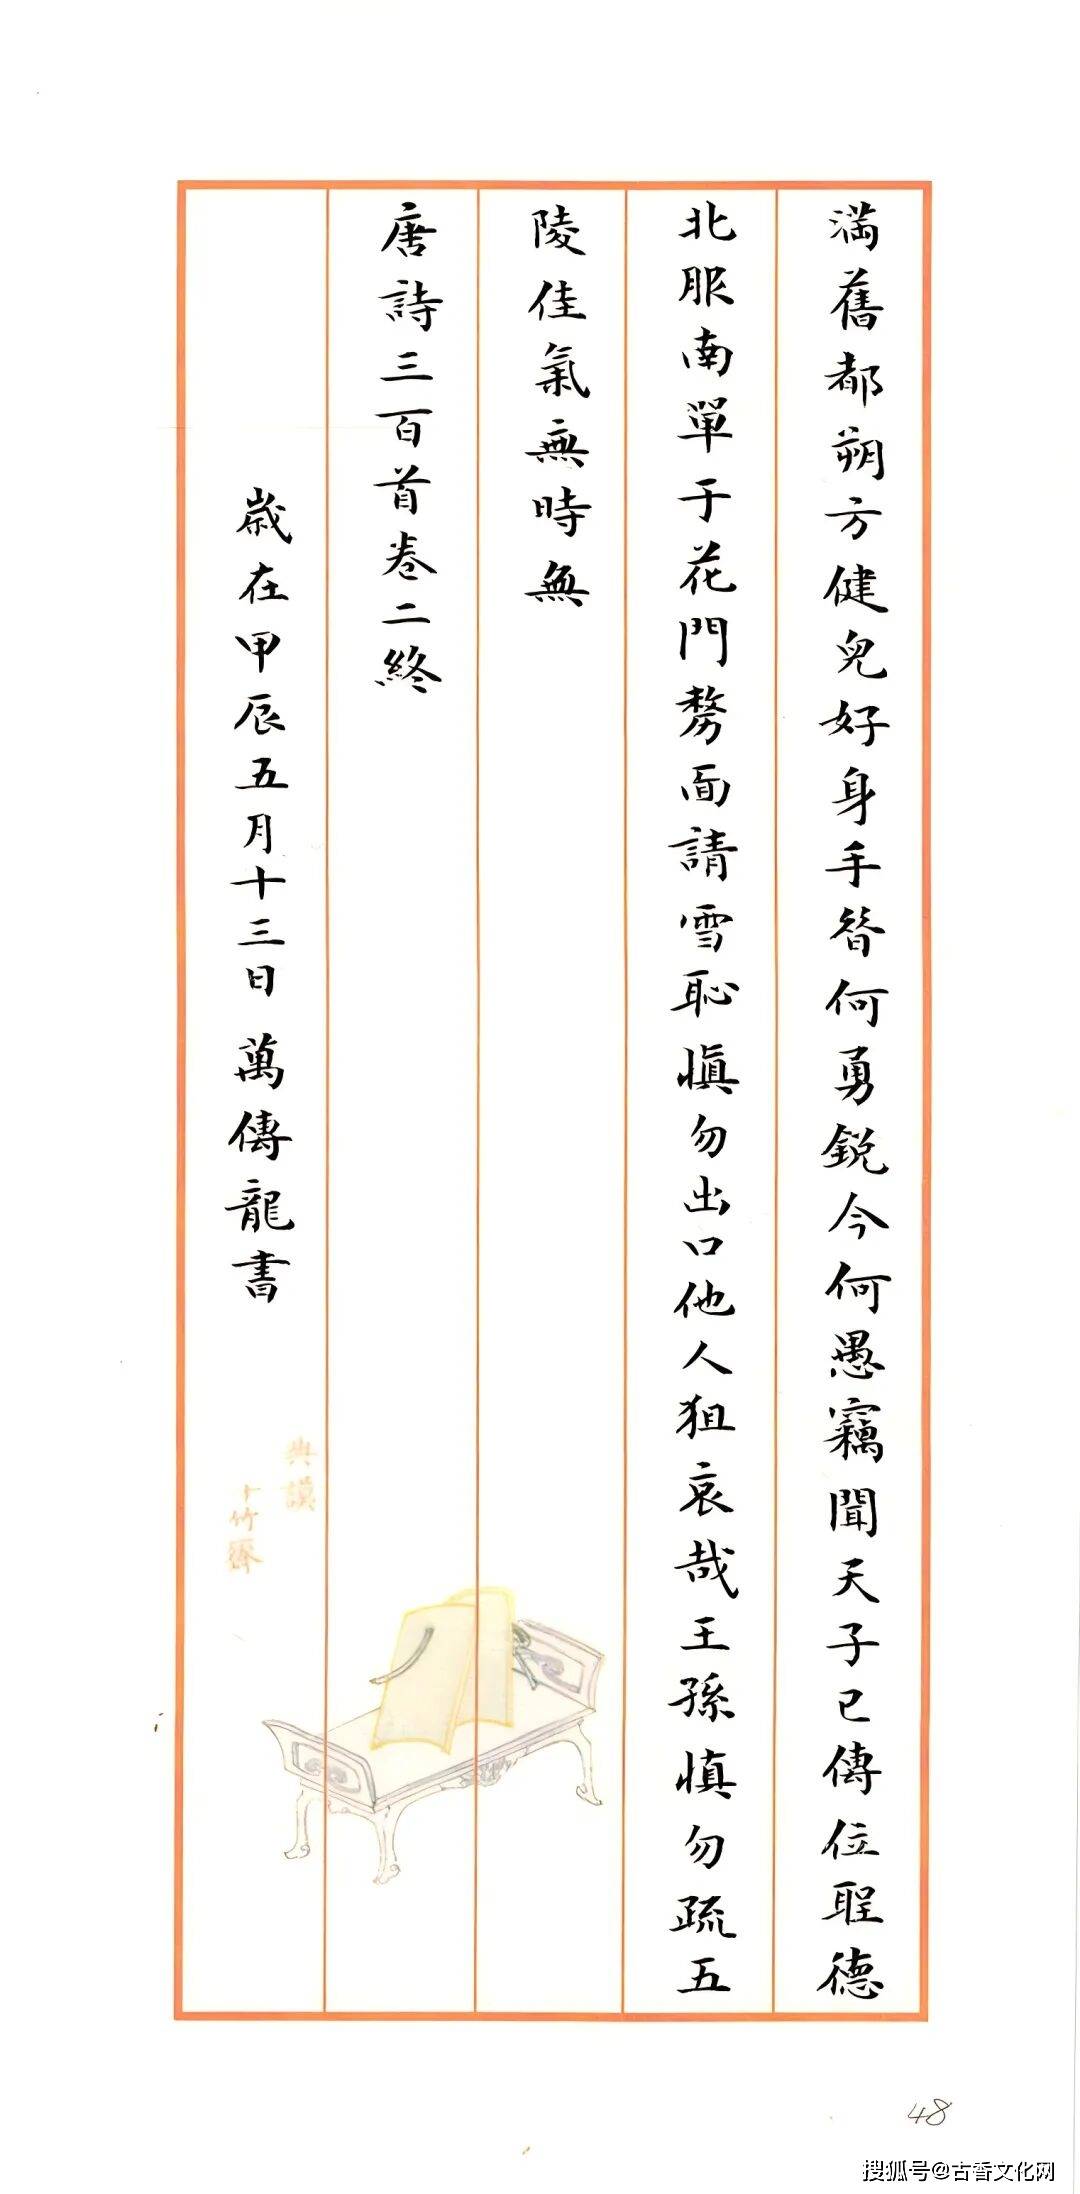 滿舊都朔方健兒好身手昝何勇銳今何愚竊聞天子已傳位聖德
北服南單于花門剺面請雪恥愼勿出口他人狙哀哉王孫慎勿疏五
陵佳氣無時無
唐詩三百首卷二終
歲在甲辰五月十三日 萬傳龍書
典謨
十竹齋
48
搜狐号@古香文化网